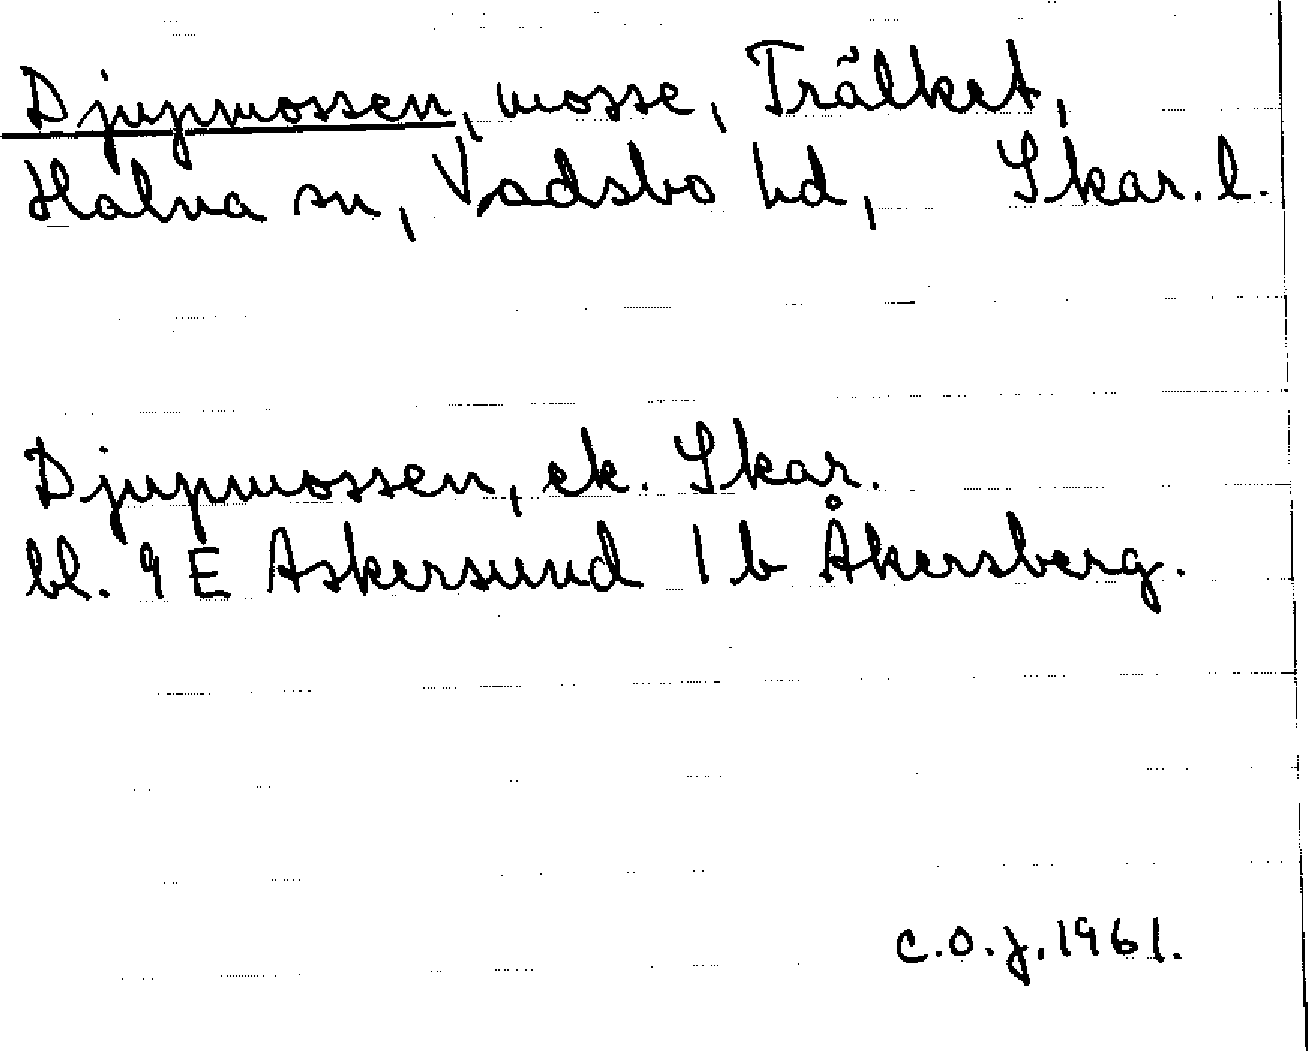 Djupmossen, mosse, Trälket,
Halna sn, Vadsbo hd, Skar. l.
Djupmossen, ek. Skar.
bl. 9 E Askersund 1 b Åkersberg.
C.O.J. 1961.